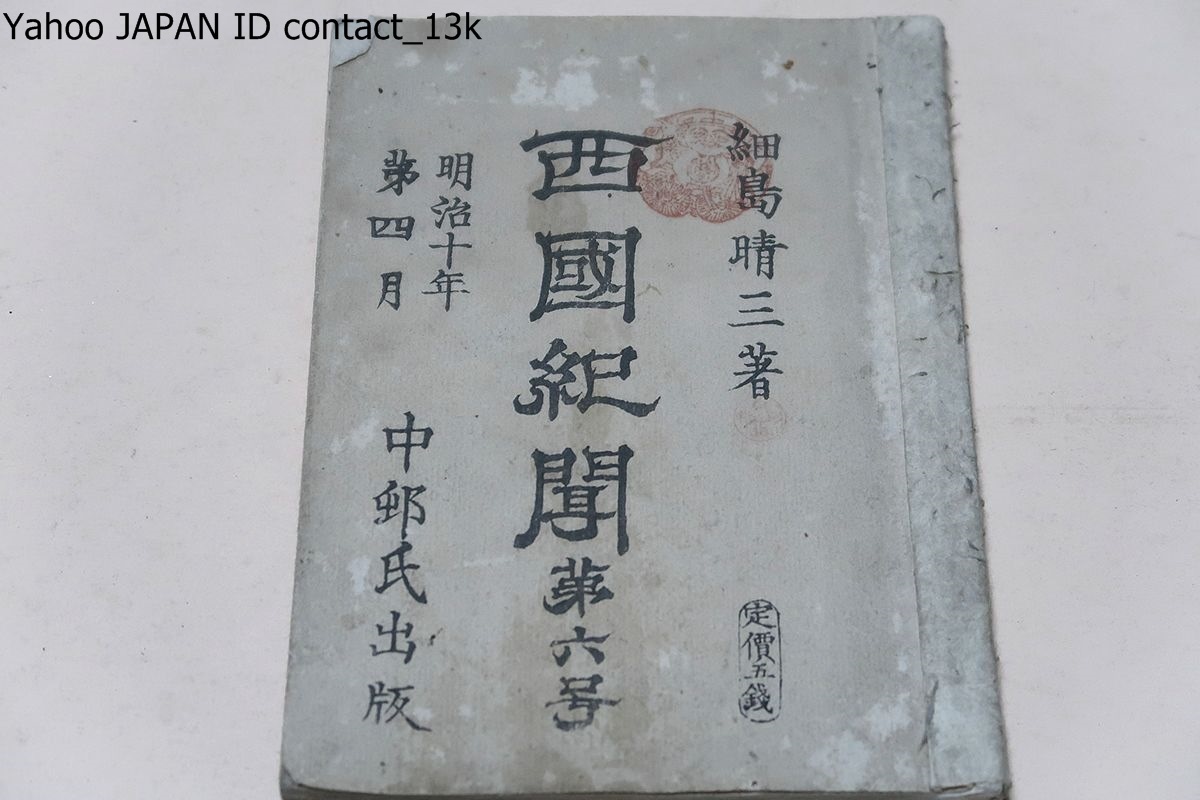 Yahoo JAPAN ID contact_13k
細島晴三著
定價五錢
西國紀聞第六号
明治十年
第四月
中邨氏出版